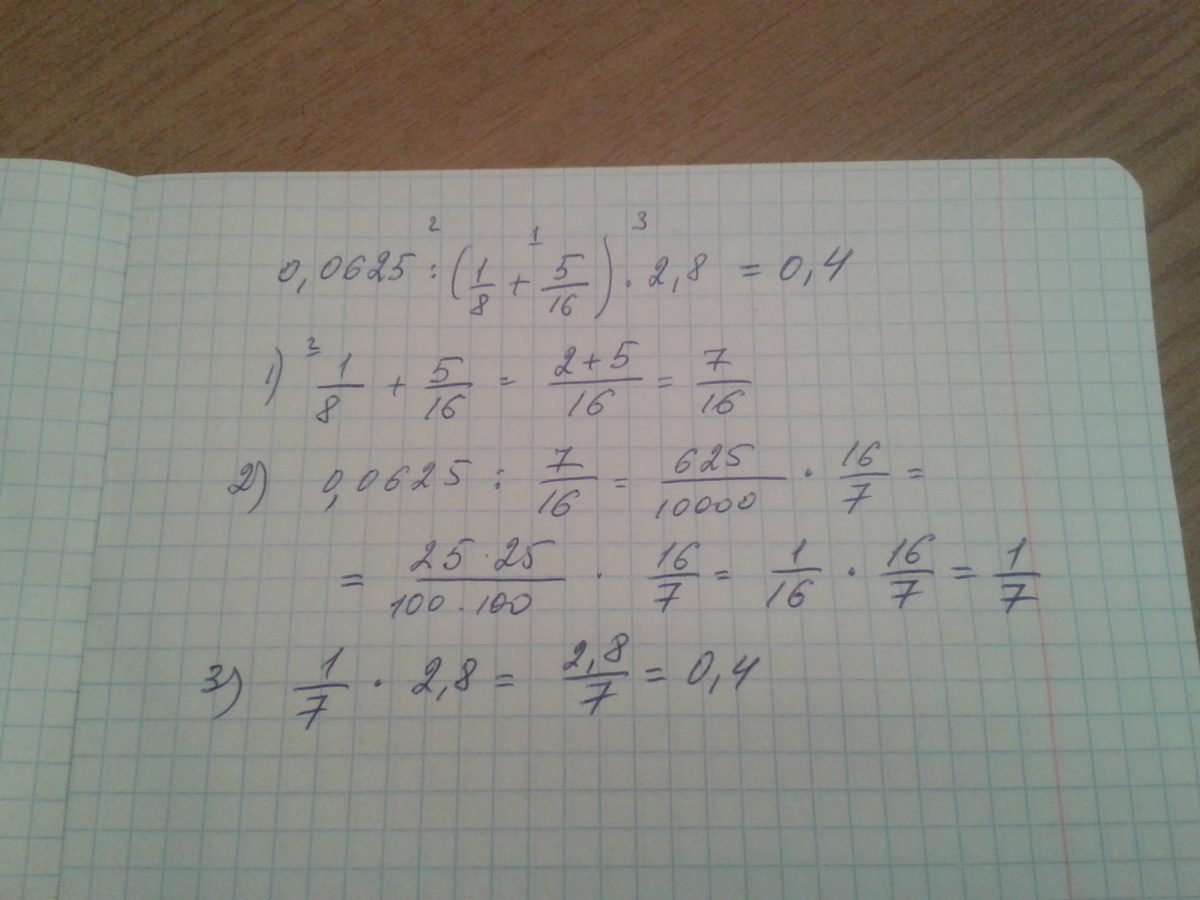 2 1 3
0,0625 : (1/8 + 5/16) · 2,8 = 0,4
1) ²⁼ 1/8 + 5/16 = (2+5)/16 = 7/16
2) 0,0625 : 7/16 = 625/10000 · 16/7 =
= (25·25)/(100·100) · 16/7 = 1/16 · 16/7 = 1/7
3) 1/7 · 2,8 = 2,8/7 = 0,4